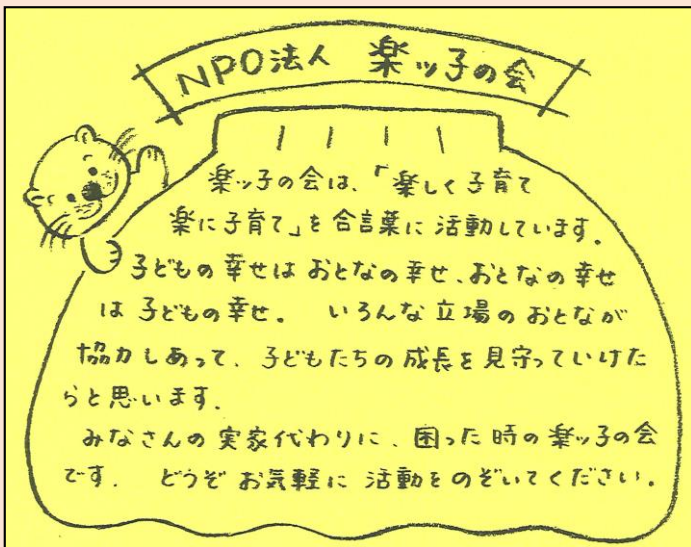 NPO法人 楽ッ子の会
楽ッ子の会は、「楽しく子育て
楽に子育て」を合言葉に活動しています。
子どもの幸せはおとなの幸せ、おとなの幸せ
は子どもの幸せ。 いろんな立場のおとなが
協力しあって、子どもたちの成長を見守っていけた
らと思います。
みなさんの実家代わりに、困った時の楽ッ子の会
です。 どうぞお気軽に活動をのぞいてください。